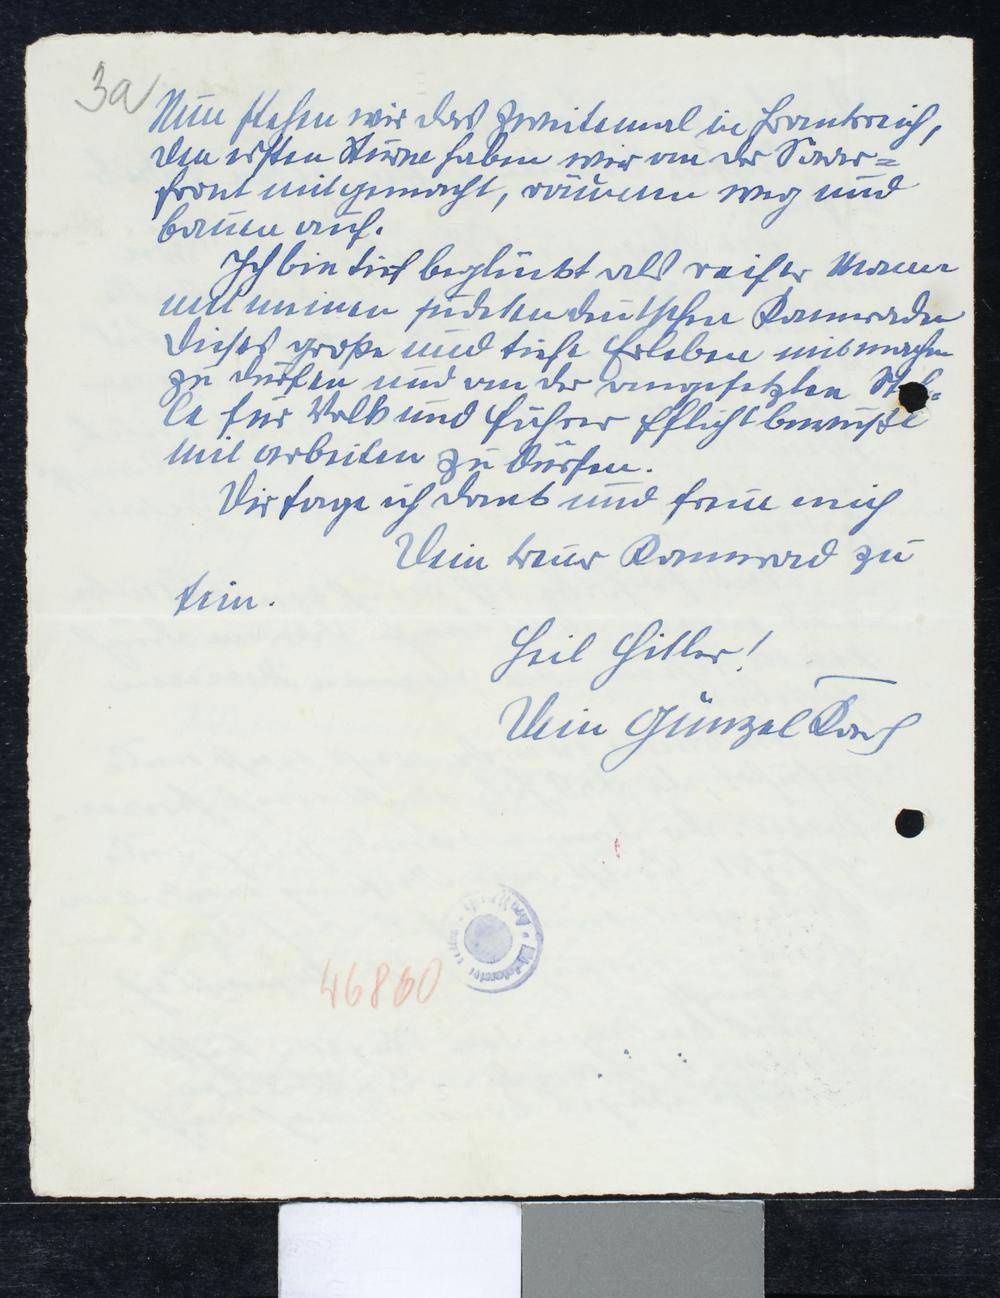 3a
Nun stehen wir das zweitemal in Frankreich,
den ersten Sturm haben wir an der Saar=
front mitgemacht, räumen weg und
bauen auf.
Ich bin tief beglückt als reifer Mann
mit meinen sudetendeutschen Kameraden
dieses große und tiefe Erleben mitmachen
zu dürfen und an der angesetzten Stel=
le für Volk und Führer Pflichtbewußt
mit arbeiten zu dürfen.
Dir sage ich dank und freue mich
Dein treuer Kamerad zu
sein.
Heil Hitler!
Dein Günzel Karl
46860